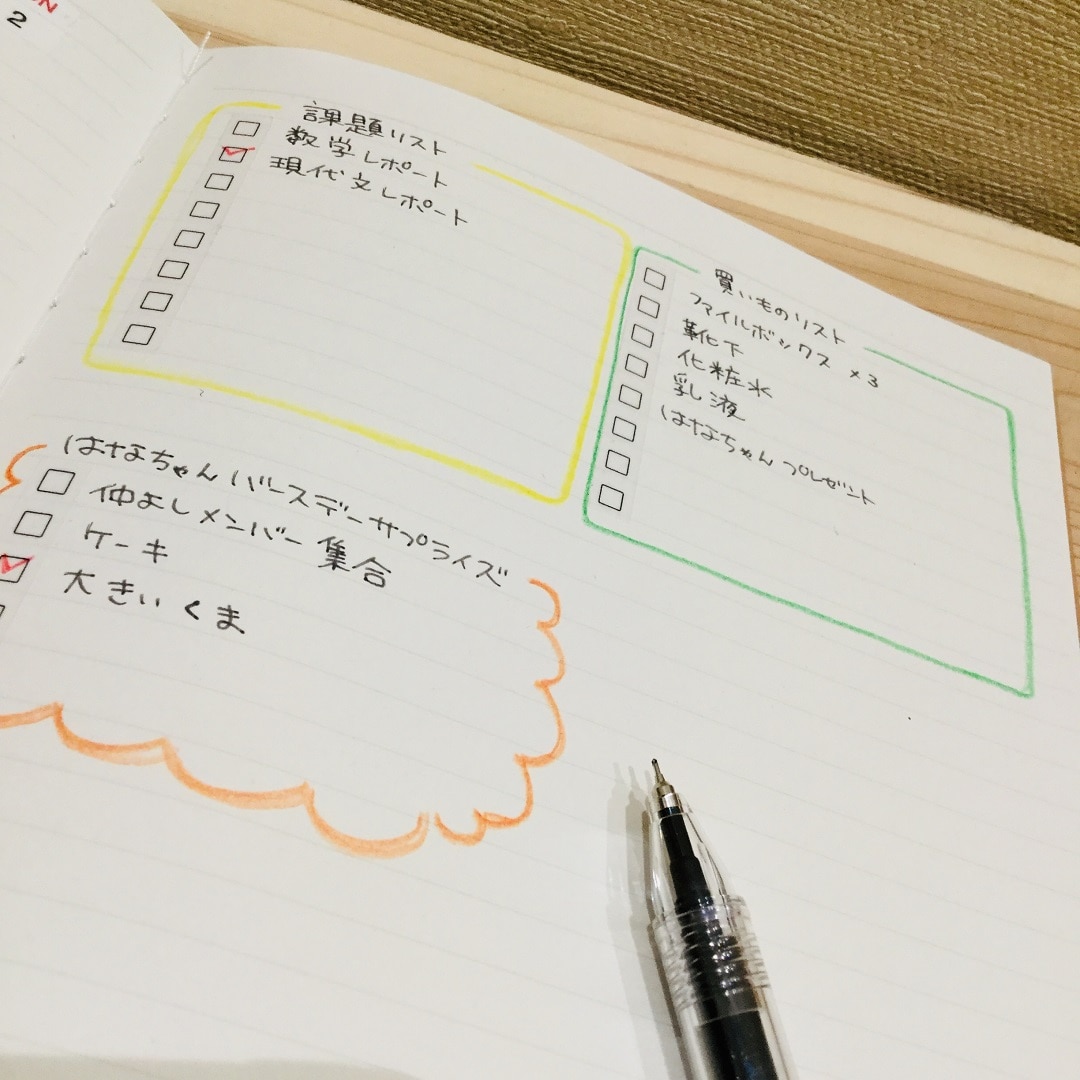 2
課題リスト
数学レポート
現代文レポート
買いものリスト
ファイルボックス ×3
靴下
化粧水
乳液
はなちゃんプレゼント
はなちゃんバースデーサプライズ
仲よしメンバー集合
ケーキ
大きいくま